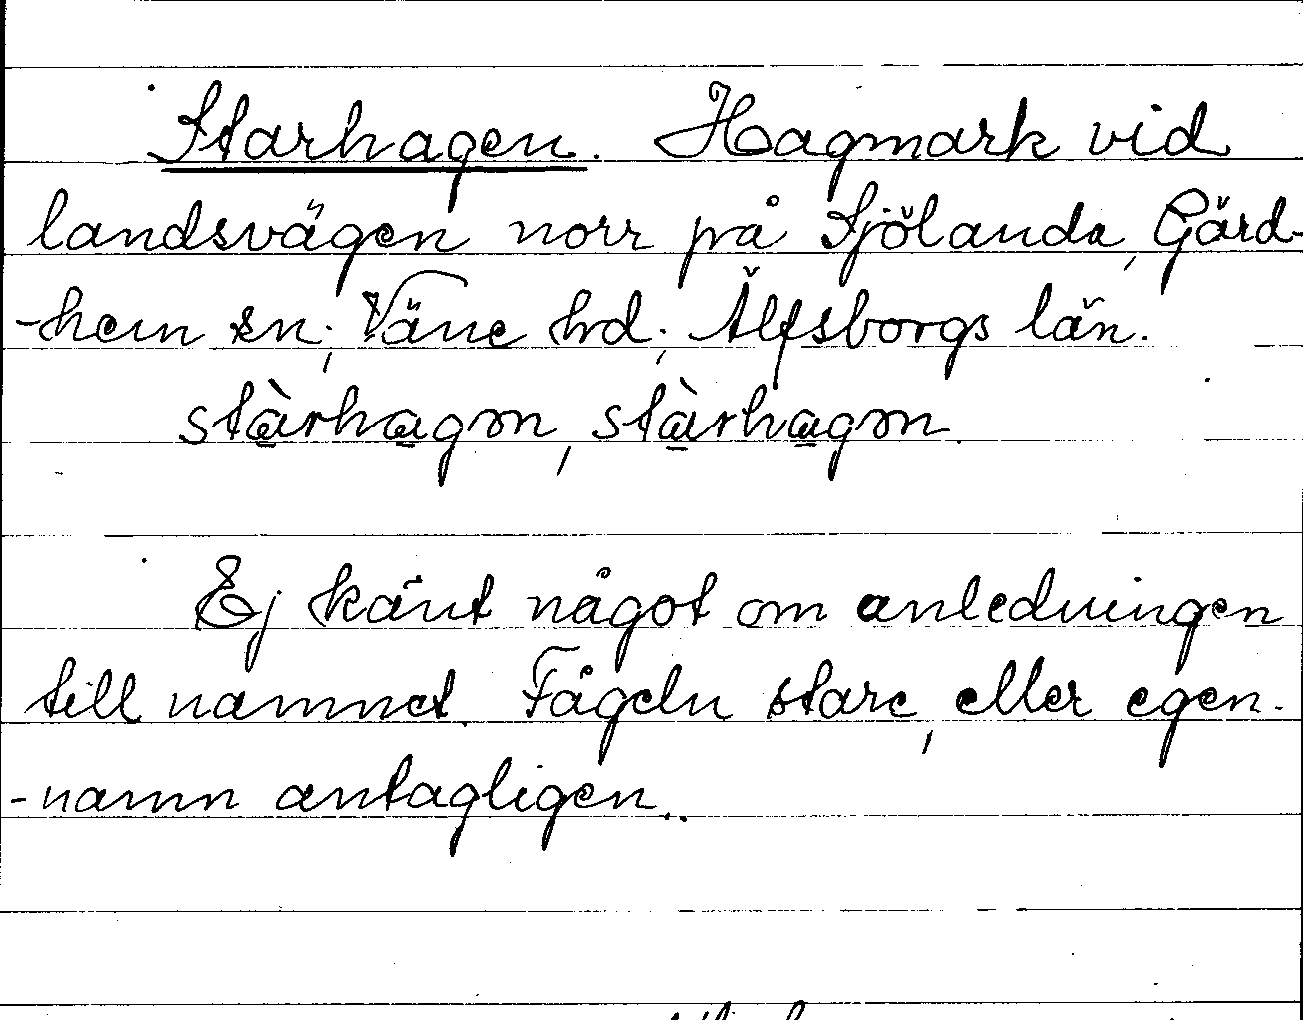 Starhagen. Hagmark vid
landsvägen norr på Sjölanda, Gärd-
-hem sn; Väne hd; Älfsborgs län.
stàrhagɷn, stàrhagɷn.
Ej känt något om anledningen
till namnet. Fågeln stare, eller egen-
-namn antagligen..